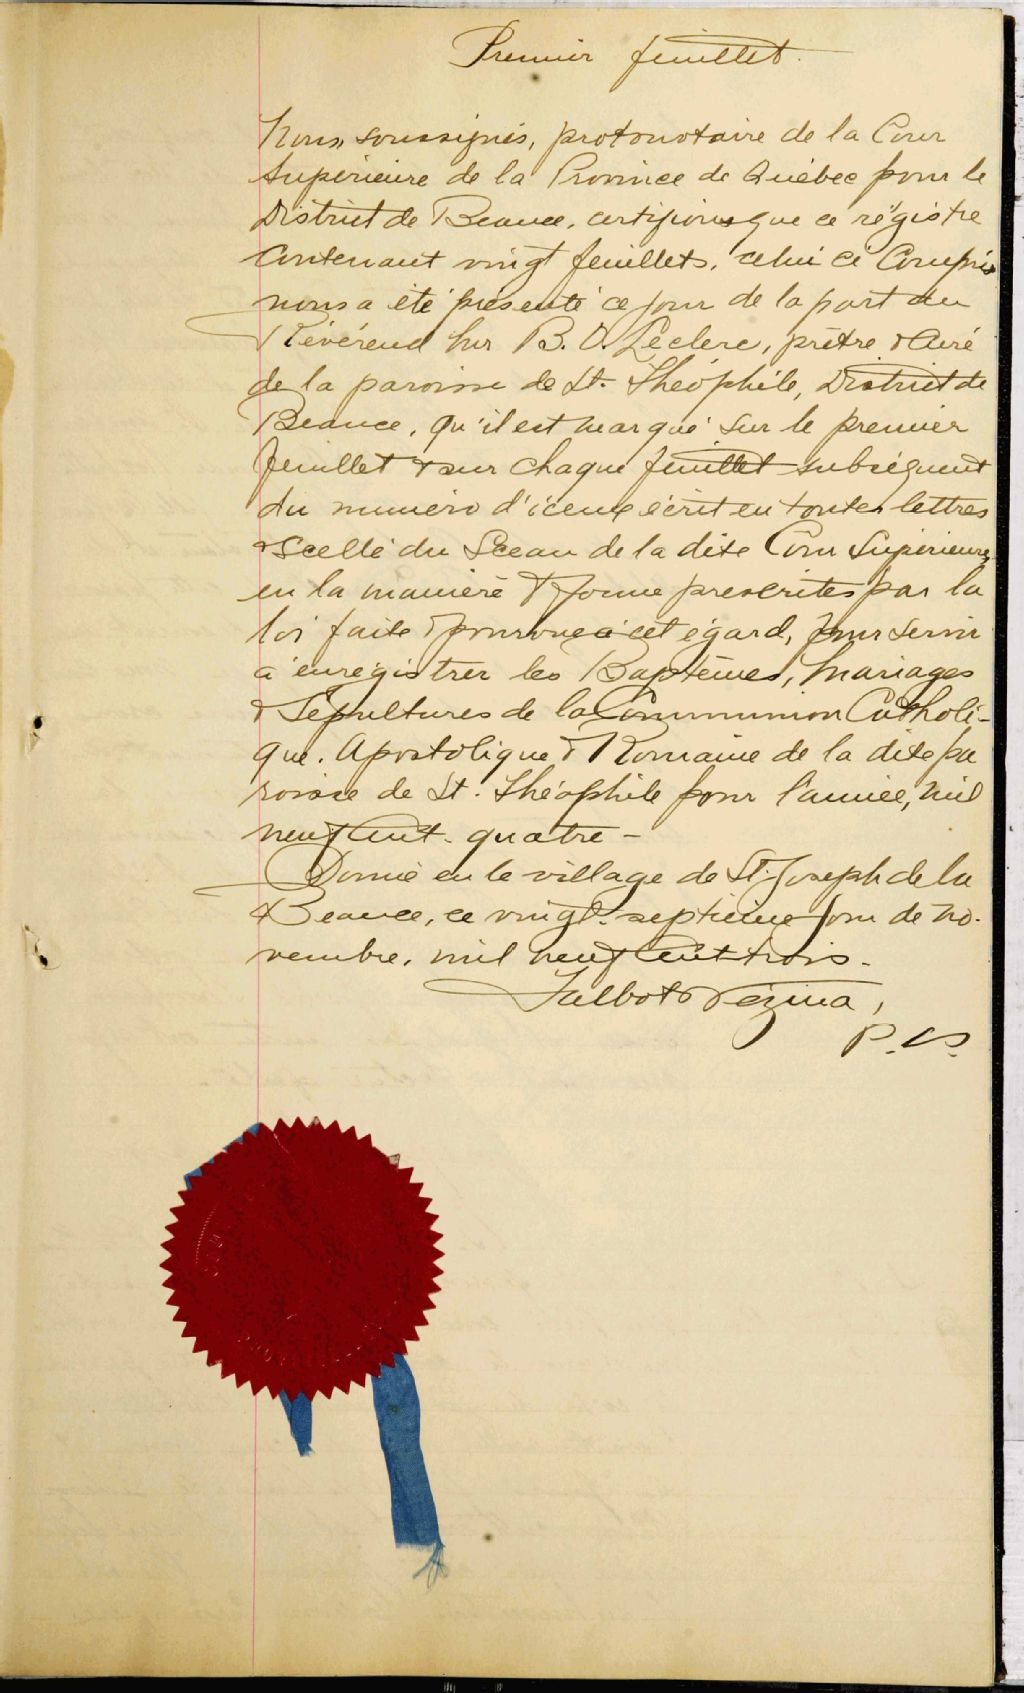 Premier feuillet.
Nous, soussignés, protonotaire de la Cour
Supérieure de la Province de Québec pour le
District de Beauce, certifions que ce régistre
contenant vingt feuillets, celui ci compris
nous a été présenté ce jour de la part du
Révérend Mr B. O. Leclerc, prêtre & curé
de la paroisse de St. Théophile, District de
Beauce, qu'il est marqué sur le premier
feuillet & sur chaque feuillet subséquent
du numéro d'iceux écrit en toutes lettres
& scellé du Sceau de la dite Cour Supérieure,
en la manière & forme prescrites par la
loi faite & pourvue à cet égard, pour servir
à enrégistrer les Baptêmes, Mariages
& Sépultures de la Communion Catholi-
que, Apostolique & Romaine de la dite pa
roisse de St. Théophile pour l'année, mil
neuf cent quatre -
Donné en le village de St. Joseph de la
Beauce, ce vingt-septième jour de no-
vembre, mil neuf cent trois.
Talbot & Vézina,
P. C. S.